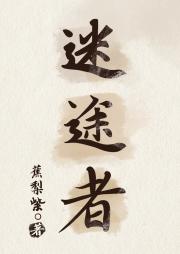 迷途者
蕉梨紫。著